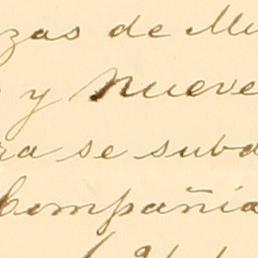 zas de Mu
y Nueve
ra se suba
Compañia